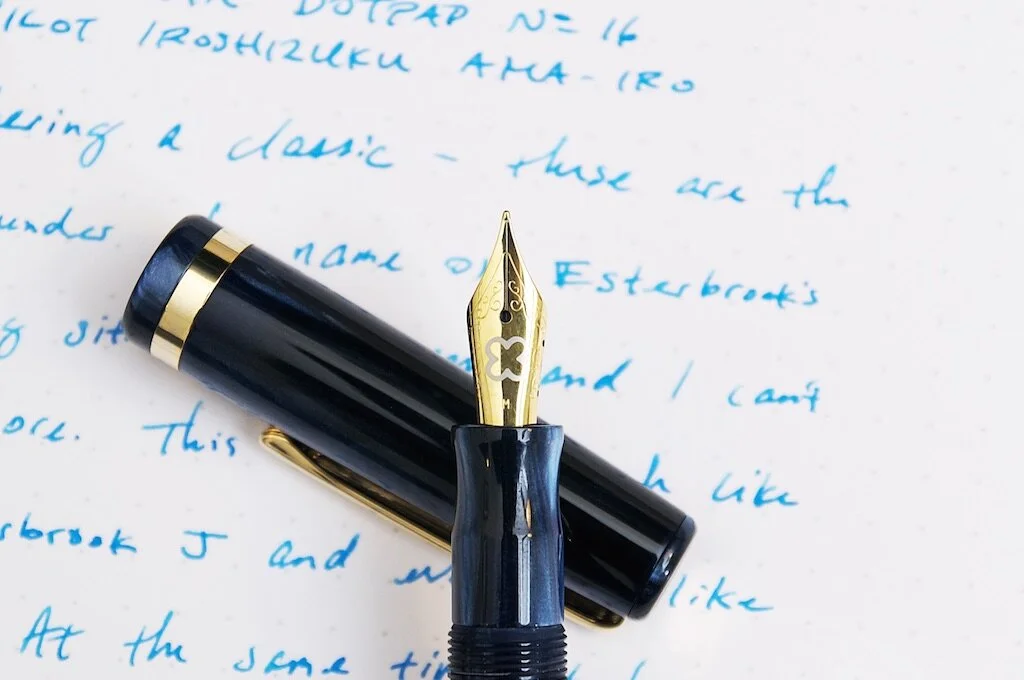 DOTPAD Nº 16
PILOT IROSHIZUKU AMA-IRO
a classic - these are the
under name of Esterbrook's
and I can't
This like
J and like
At the same
M